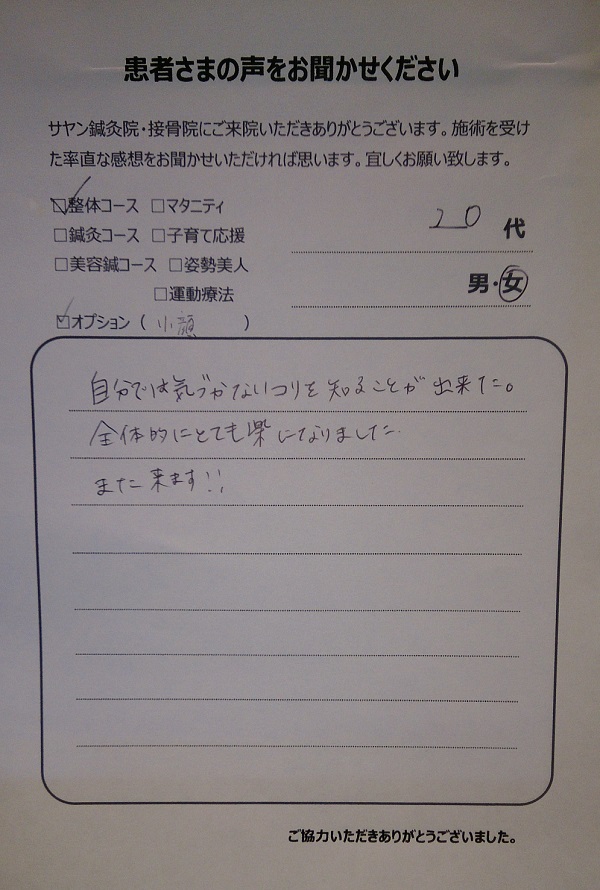 患者さまの声をお聞かせください
サヤン鍼灸院・接骨院にご来院いただきありがとうございます。施術を受け
た率直な感想をお聞かせいただければ思います。宜しくお願い致します。
☑整体コース □マタニティ
20 代
□鍼灸コース □子育て応援
□美容鍼コース □姿勢美人
男・女
□運動療法
☑オプション ( 小顔 )
自分では気づかないコリを知ることが出来た。
全体的にとても楽になりました
また来ます!!
ご協力いただきありがとうございました。